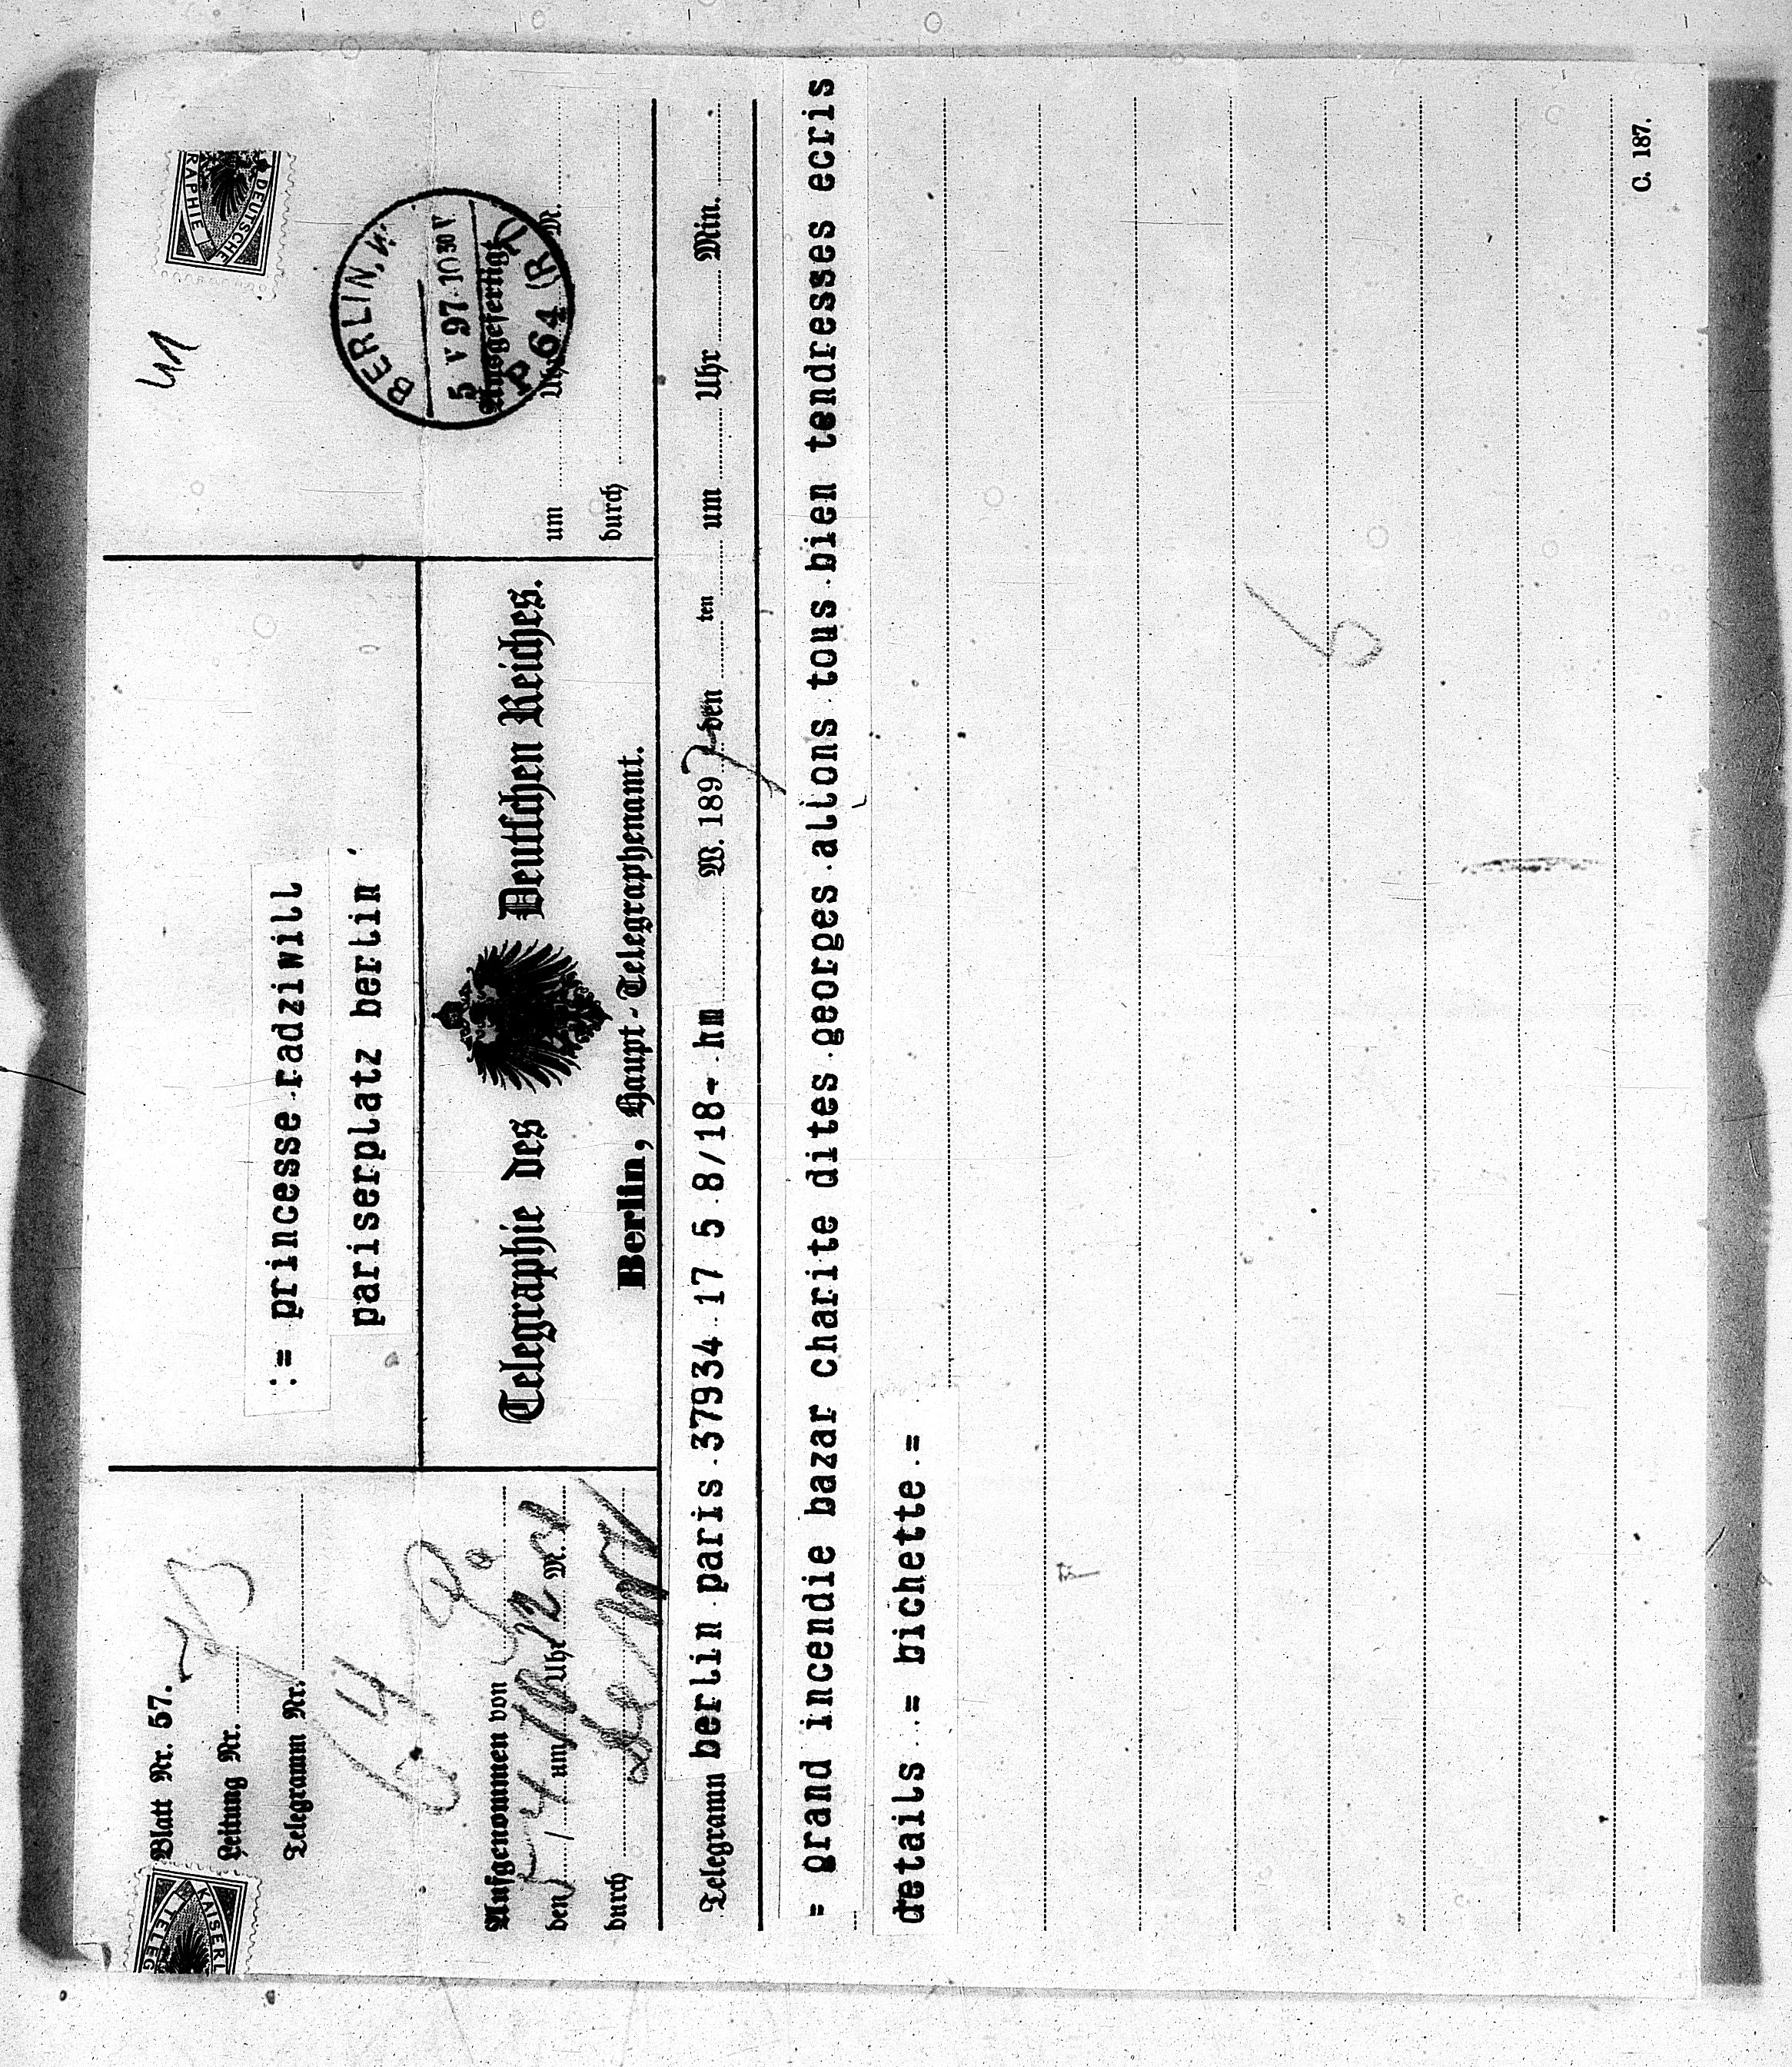 Blatt Nr. 57.
Leitung Nr.
Telegramm Nr.
64
Aufgenommen von
den 5/4 um Uhr 12 M.
durch
:= princesse radziwill
pariserplatz berlin
Telegraphie des Deutschen Reiches.
Berlin, Haupt-Telegraphenamt.
DEUTSCHE
RAPHIE
KAISERL
TELEG
BERLIN, W.
5 V 97 10 30 V.
P 64 (R
Ausgefertigt
um Uhr M.
durch
Telegramm berlin paris 37934 17 5 8/18- hm W. 1897 den ten um Uhr Min.
= grand incendie bazar charite dites georges allons tous bien tendresses ecris
details = bichette =
C. 187.